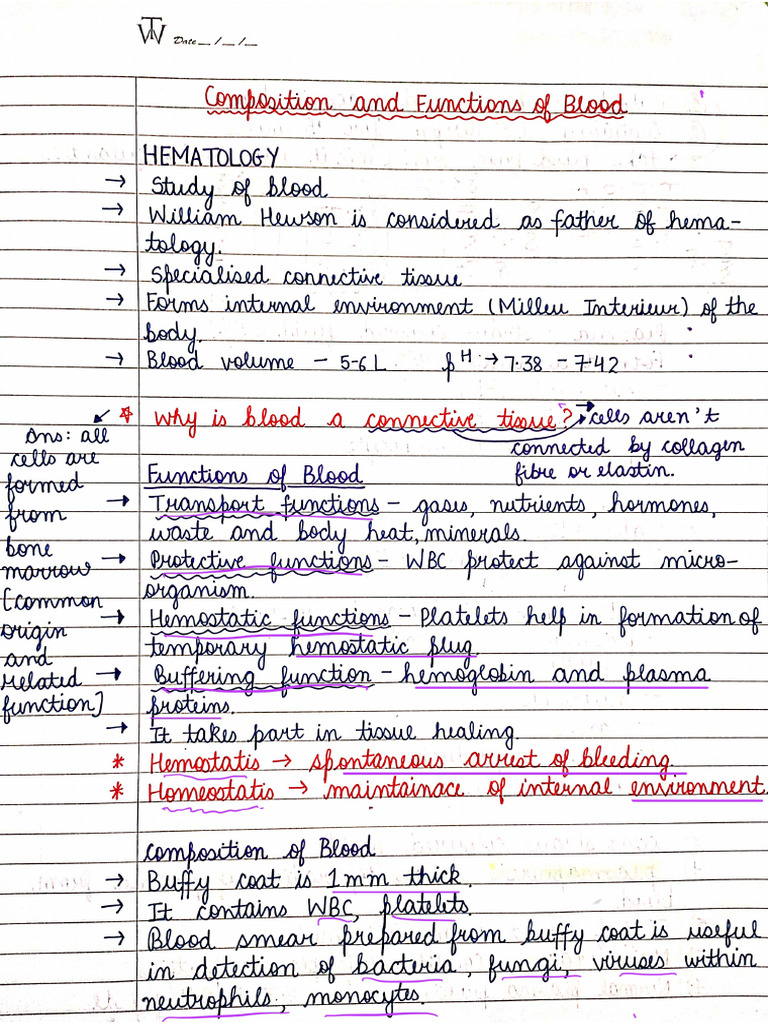 TW Date __/__/__
Composition and Functions of Blood
HEMATOLOGY
→ Study of blood
→ William Hewson is considered as father of hema-
tology.
→ Specialised connective tissue
→ Forms internal environment (Milleu Interieur) of the
body.
→ Blood volume – 5-6 L pH → 7.38 – 7.42
☆ Why is blood a connective tissue? → cells aren't
connected by collagen
fibre or elastin.
Ans: all
cells are
formed
from
bone
marrow
[common
origin
and
related
function]
Functions of Blood
→ Transport functions – gases, nutrients, hormones,
waste and body heat, minerals.
→ Protective functions – WBC protect against micro-
organism.
→ Hemostatic functions – Platelets help in formation of
temporary hemostatic plug.
→ Buffering function – hemoglobin and plasma
proteins.
→ It takes part in tissue healing.
* Hemostatis → spontaneous arrest of bleeding.
* Homeostatis → maintainace of internal environment.
Composition of Blood
→ Buffy coat is 1mm thick.
→ It contains WBC, platelets.
→ Blood smear prepared from buffy coat is useful
in detection of bacteria, fungi, viruses within
neutrophils, monocytes.